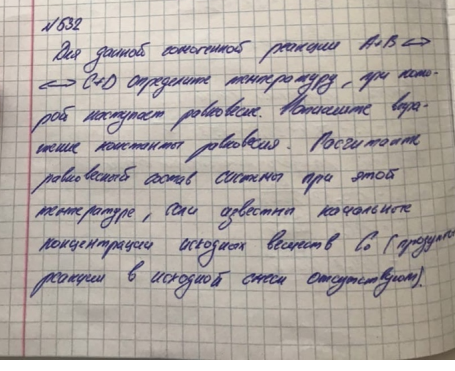 №532
Для данной гомогенной реакции A+B ⇔
⇔ C+D определите температуру, при кото-
рой наступает равновесие. Напишите выра-
жение константы равновесия. Рассчитайте
равновесный состав системы при этой
температуре, если известны начальные
концентрации исходных веществ C₀ (продукты
реакции в исходной смеси отсутствуют).